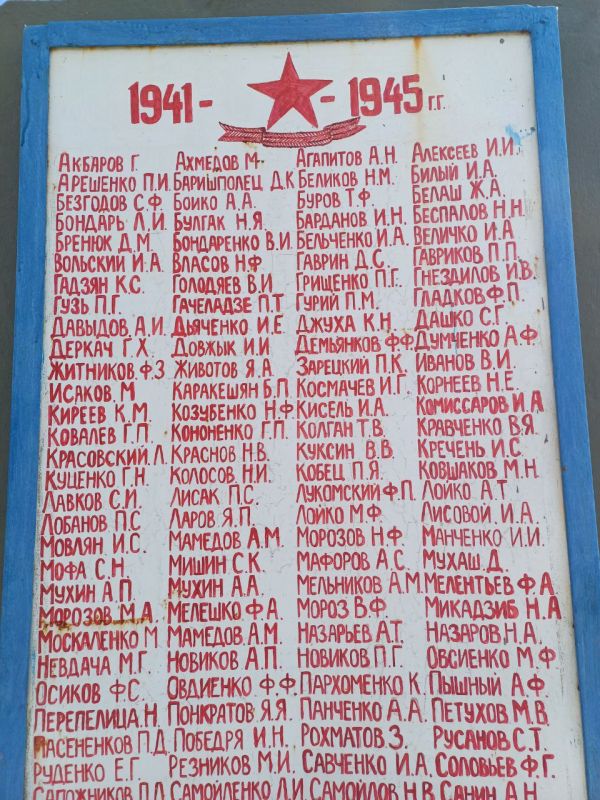 1941 - - 1945 г.г.
Акбаров Г. Ахмедов М. Агапитов А.Н. Алексеев И.И.
Арешенко П.И. Баришполец Д.К Беликов Н.М. Билый И.А.
Безгодов С.Ф. Бойко А.А. Буров Т.Ф. Белаш Ж.А.
Бондарь Л.И. Булгак Н.Я. Барданов И.Н. Беспалов Н.Н.
Бренюк Д.М. Бондаренко В.И. Бельченко И.А. Величко И.А
Вольский И.А. Власов Н.Ф. Гаврин Д.С. Гавриков П.П.
Гадзян К.С. Голодяев В.И. Грищенко П.Г. Гнездилов И.В.
Гузь П.Г. Гачеладзе П.Т Гурий П.М. Гладков Ф.П.
Давыдов А.И. Дьяченко И.Е. Джуха К.Н. Дашко С.Г.
Деркач Г.Х. Довжык И.И Демьянков Ф.Ф. Думченко А.Ф
Житников Ф.З Животов Я.А. Зарецкий П.К. Иванов В.И.
Исаков М. Каракешян Б.П. Космачев И.Г. Корнеев Н.Е.
Киреев К.М. Козубенко Н.Ф Кисель И.А. Комиссаров И.А
Ковалев Г.П. Кононенко Г.П. Колган Т.В. Кравченко В.Я.
Красовский Л. Краснов Н.В. Куксин В.В. Кречень И.С.
Куценко Г.Н. Колосов Н.И. Кобец П.Я. Ковшаков М.Н.
Лавков С.И. Лисак П.С. Лукомский Ф.П. Лойко А.Т
Лобанов П.С Ларов Я.П. Лойко М.Ф. Лисовой И.А.
Мовлян И.С. Мамедов А.М. Морозов Н.Ф. Манченко И.И.
Мофа С.Н. Мишин С.К. Мафоров А.С. Мухаш Д.
Мухин А.П. Мухин А.А. Мельников А.М. Мелентьев Ф.А.
Морозов М.А. Мелешко Ф.А. Мороз В.Ф. Микадзиб Н.А
Москаленко М. Мамедов А.М. Назарьев А.Т. Назаров Н.А.
Невдача М.Г Новиков А.П. Новиков П.Г. Овсиенко М.Ф
Осиков Ф.С. Овдиенко Ф.Ф. Пархоменко К. Пышный А.Ф
Перепелица Н. Понкратов Я.Я. Панченко А.А. Петухов М.В.
Пасененков П.Д. Победря И.Н. Рохматов З. Русанов С.Т.
Руденко Е.Г. Резников М.И. Савченко И.А. Соловьев Ф.Г.
Сапожников П.Д. Самойленко Д.И. Самойлов Н.В. Санин А.Н.